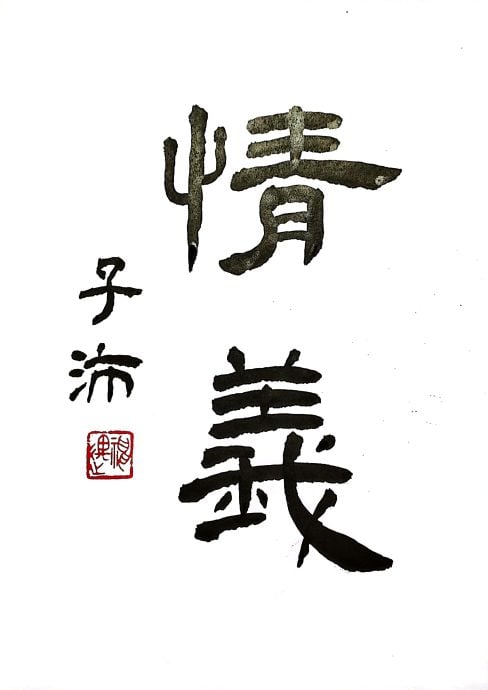 情義
子沛